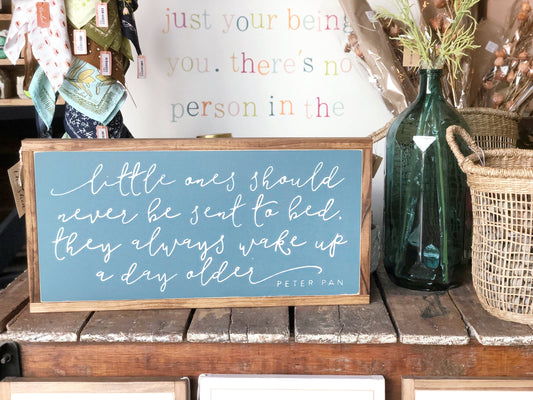 just your being
you. there's no
person in the
little ones should
never be sent to bed.
they always wake up
a day older
PETER PAN